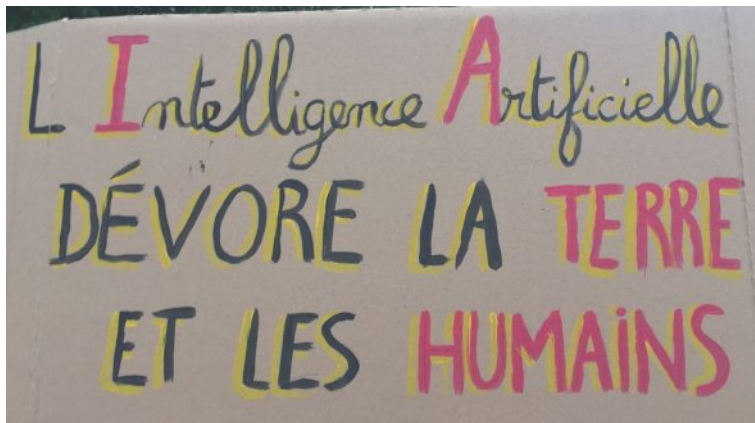 L Intelligence Artificielle
DÉVORE LA TERRE
ET LES HUMAiNS